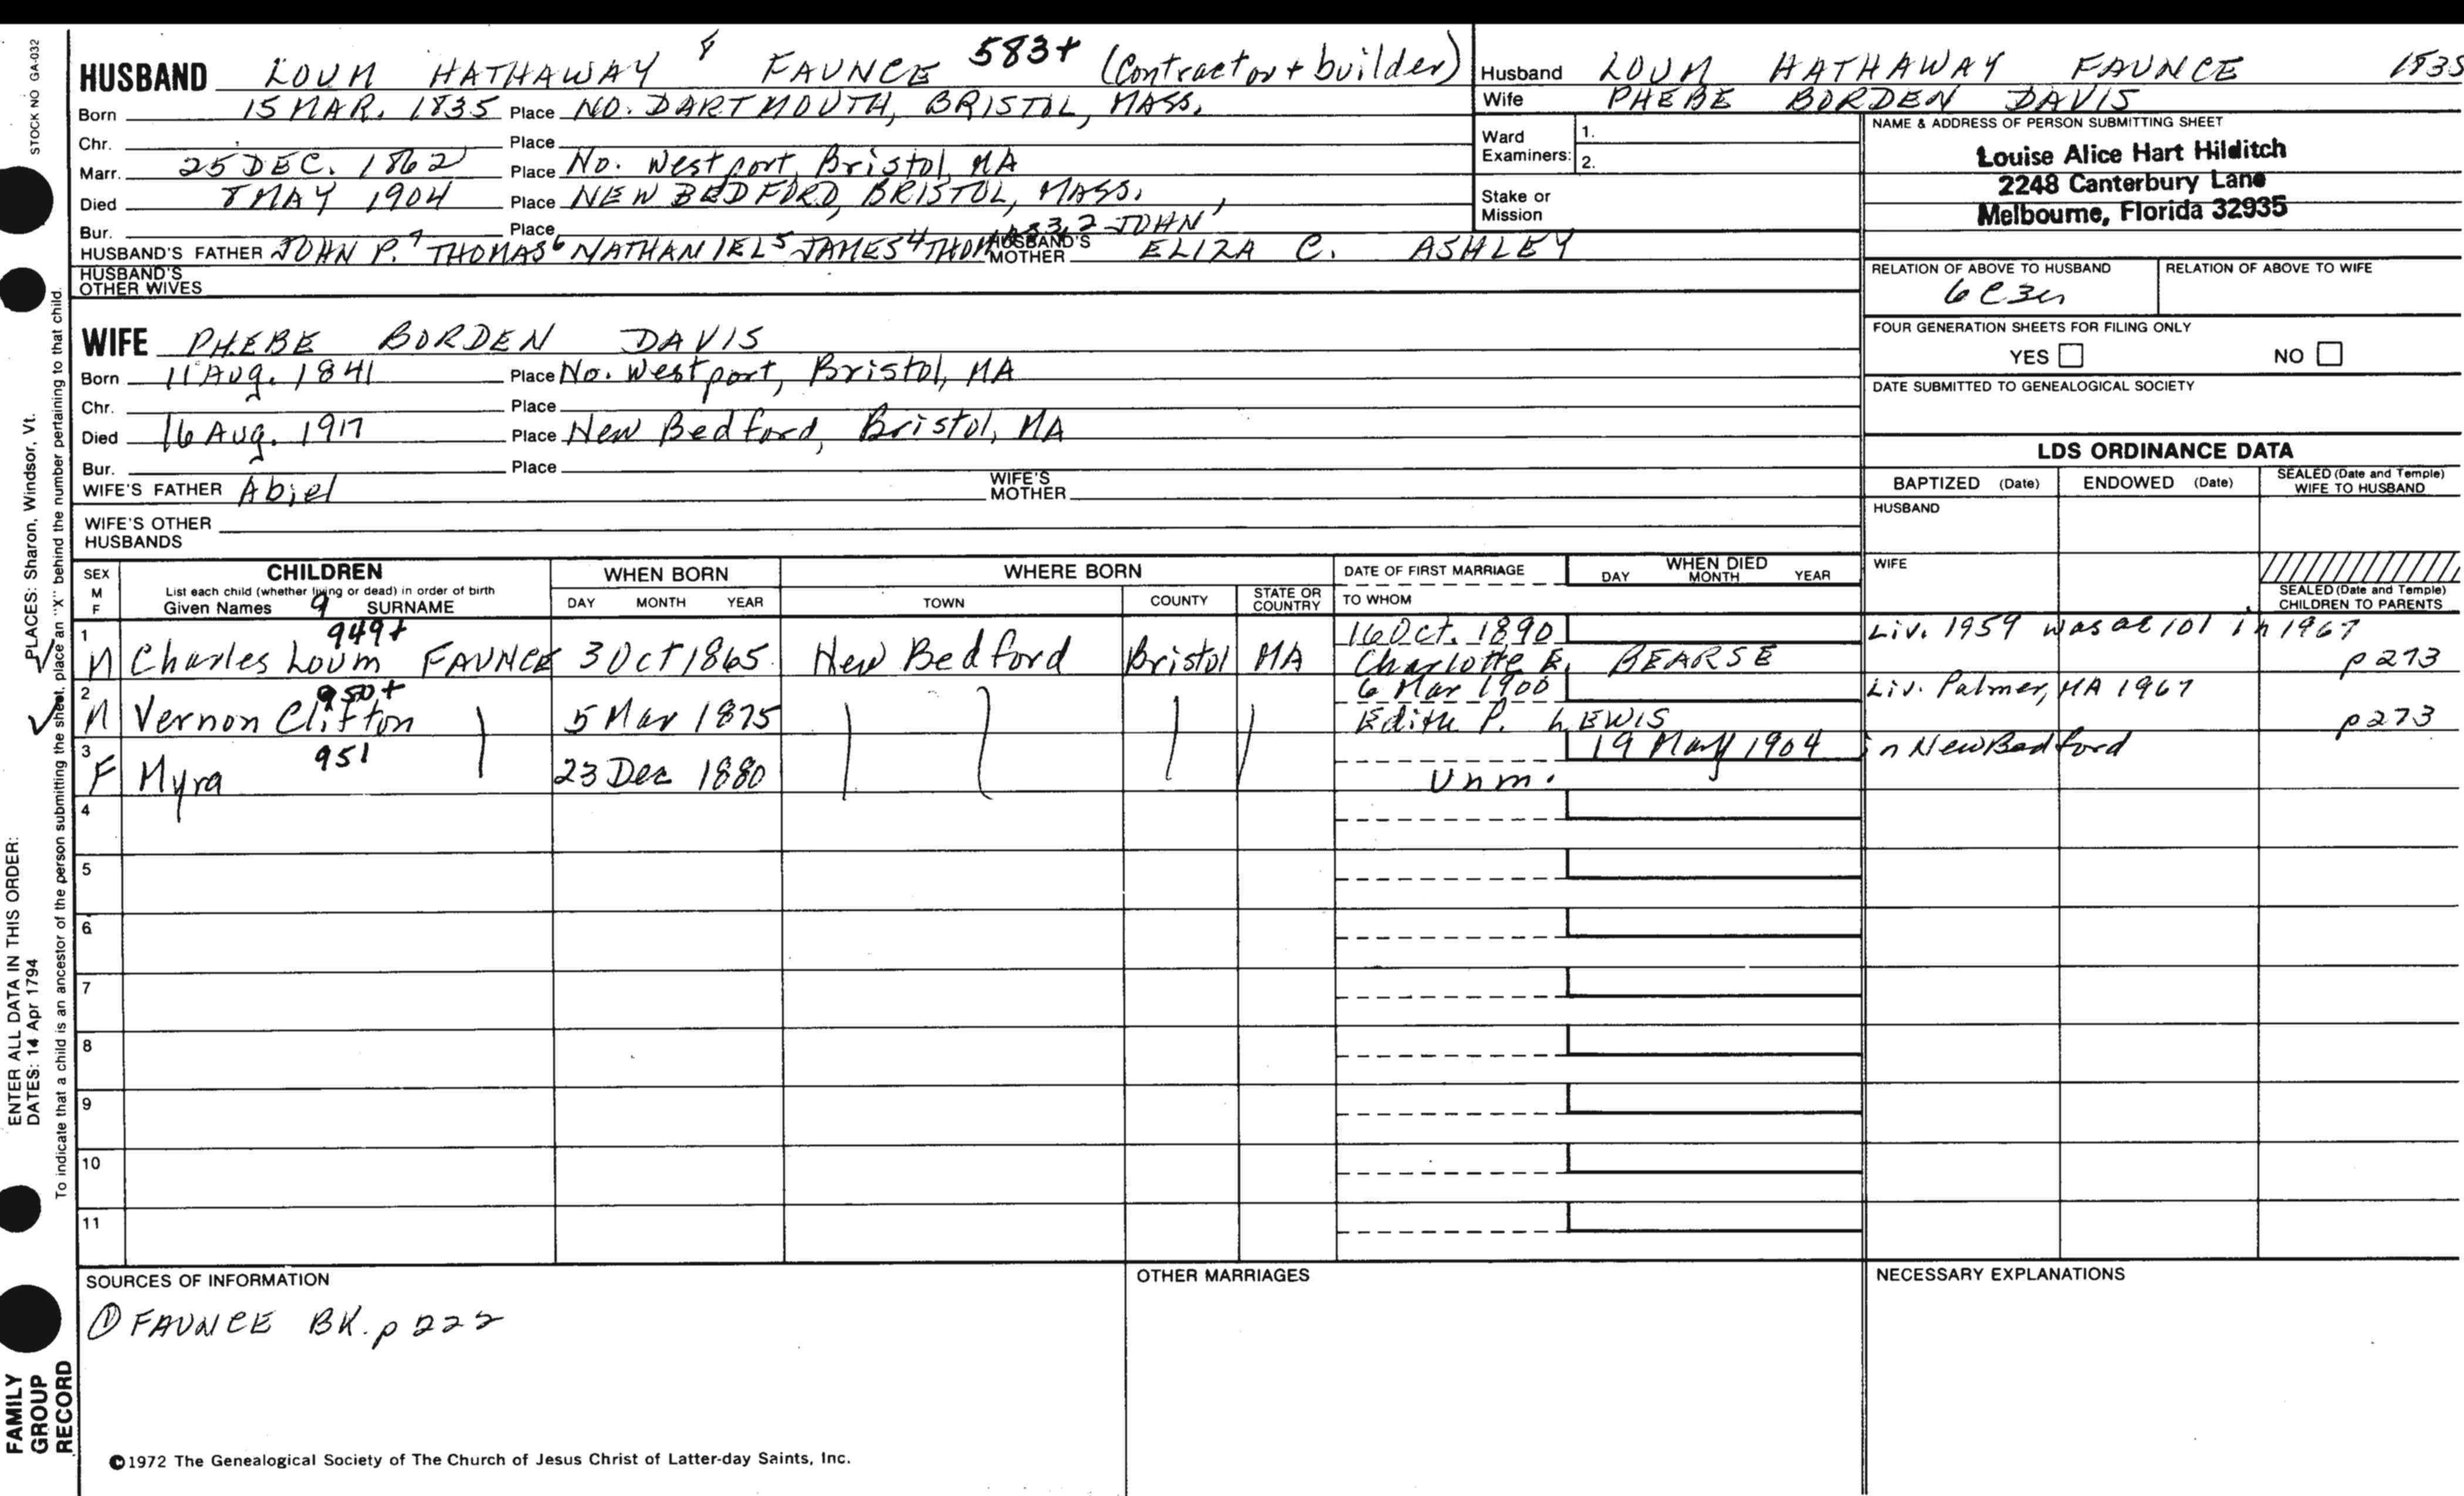 STOCK NO GA-032
HUSBAND LOUM HATHAWAY 8 FAUNCE 583+ (Contractor + builder)
Born 15 MAR. 1835 Place NO. DARTMOUTH, BRISTOL, MASS.
Chr. Place
Marr. 25 DEC. 1862 Place No. Westport, Bristol, MA
Died 8 MAY 1904 Place NEW BEDFORD, BRISTOL, MASS.
Bur. Place
HUSBAND'S FATHER JOHN P.7 THOMAS6 NATHANIEL5 JAMES4 THOMAS3,2 JOHN' HUSBAND'S MOTHER ELIZA C. ASHLEY
HUSBAND'S OTHER WIVES
WIFE PHEBE BORDEN DAVIS
Born 11 Aug. 1841 Place No. Westport, Bristol, MA
Chr. Place
Died 16 Aug. 1917 Place New Bedford, Bristol, MA
Bur. Place
WIFE'S FATHER Abiel WIFE'S MOTHER
WIFE'S OTHER HUSBANDS
Husband LOUM HATHAWAY FAUNCE 1835
Wife PHEBE BORDEN DAVIS
Ward Examiners: 1.
2.
Stake or Mission
NAME & ADDRESS OF PERSON SUBMITTING SHEET
Louise Alice Hart Hilditch
2248 Canterbury Lane
Melbourne, Florida 32935
RELATION OF ABOVE TO HUSBAND RELATION OF ABOVE TO WIFE
6C3r
FOUR GENERATION SHEETS FOR FILING ONLY
YES NO
DATE SUBMITTED TO GENEALOGICAL SOCIETY
LDS ORDINANCE DATA
BAPTIZED (Date) ENDOWED (Date) SEALED (Date and Temple) WIFE TO HUSBAND
HUSBAND
WIFE
SEALED (Date and Temple) CHILDREN TO PARENTS
SEX M F CHILDREN WHEN BORN WHERE BORN DATE OF FIRST MARRIAGE WHEN DIED
List each child (whether living or dead) in order of birth
Given Names 9 SURNAME DAY MONTH YEAR TOWN COUNTY STATE OR COUNTRY TO WHOM DAY MONTH YEAR
1 949+ 16 Oct. 1890 Liv. 1959 was ae 101 in 1967
M Charles Loum FAUNCE 3 Oct 1865 New Bedford Bristol MA Charlotte E. BEARSE p 273
2 950+ 6 Mar 1900 Liv. Palmer, MA 1967
M Vernon Clifton 5 Mar 1875 Edith P. LEWIS p 273
3 951 19 May 1904 in New Bedford
F Myra 23 Dec 1880 Unm.
4
5
6
7
8
9
10
11
SOURCES OF INFORMATION OTHER MARRIAGES NECESSARY EXPLANATIONS
① FAUNCE BK. p 222
©1972 The Genealogical Society of The Church of Jesus Christ of Latter-day Saints, Inc.
ENTER ALL DATA IN THIS ORDER:
DATES: 14 Apr 1794 PLACES: Sharon, Windsor, Vt.
To indicate that a child is an ancestor of the person submitting the sheet, place an "X" behind the number pertaining to that child.
FAMILY
GROUP
RECORD